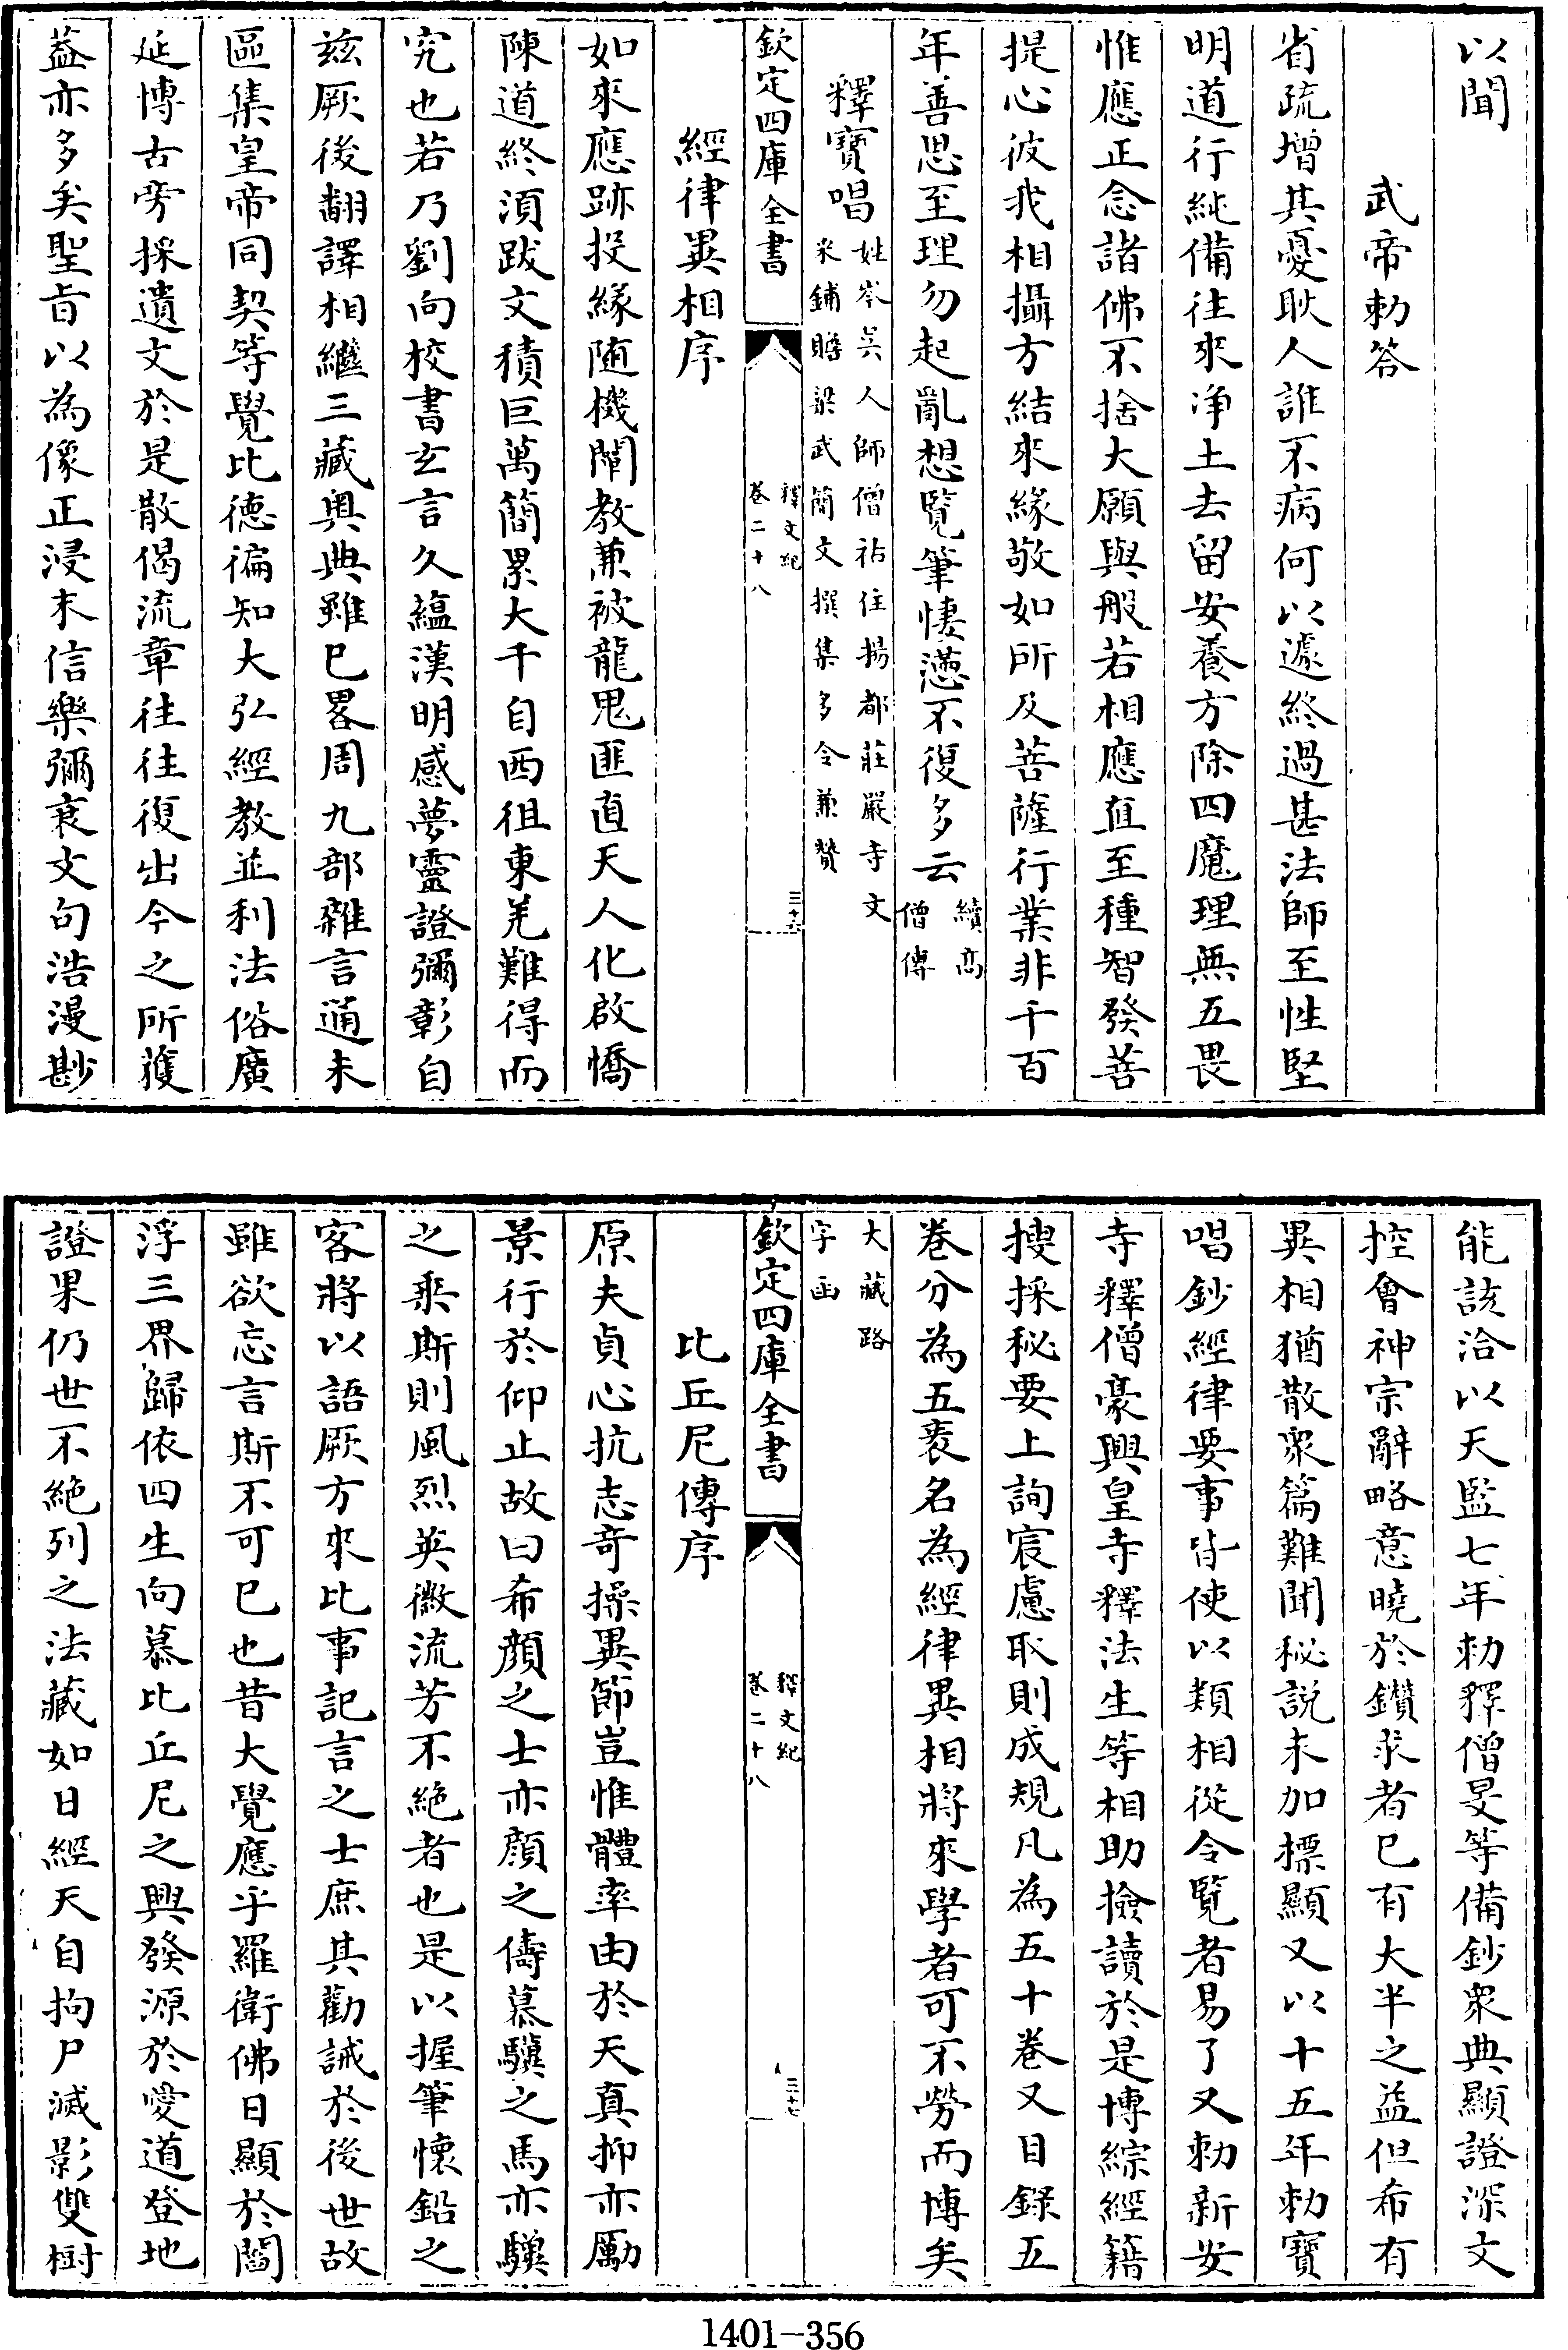 以聞
武帝勅答
省疏増其憂耿人誰不病何以遽終過甚法師至性堅
明道行純備往來净土去留安養方除四魔理無五畏
惟應正念諸佛不捨大願與般若相應直至種智發善
提心彼我相攝方結來緣敬如所及菩薩行業非千百
年善思至理勿起亂想覽筆悽懣不復多云續高
僧傳
釋寳唱姓岑吳人師僧祐住揚都莊嚴寺文
采鋪贍梁武簡文撰集多令兼贊
欽定四庫全書
釋文紀
卷二十八
三十六
經律異相序
如來應跡投緣随機闡教兼被龍鬼匪直天人化啟憍
陳道終須跋文積巨萬簡累大千自西徂東羌難得而
究也若乃劉向校書玄言久蘊漢明感夢靈證彌彰自
兹厥後翻譯相繼三藏奥典雖已畧周九部雜言通未
區集皇帝同契等覺比德徧知大弘經教並利法俗廣
延博古旁採遺文於是散偈流章往往復出今之所獲
葢亦多矣聖㫖以為像正浸末信樂彌衰文句浩漫尠
能該洽以天監七年勅釋僧旻等備鈔衆典顯證深文
控會神宗辭略意曉於鑽求者已有大半之益但希有
異相猶散衆篇難聞秘説未加摽顯又以十五年勅寳
唱鈔經律要事皆使以類相從令覽者易了又勅新安
寺釋僧豪興皇寺釋法生等相助撿讀於是博綜經籍
搜採秘要上詢宸慮取則成規凡為五十卷又目錄五
卷分為五袠名為經律異相將來學者可不勞而博矣
大藏路
字函
欽定四庫全書
釋文紀
卷二十八
三十七
比丘尼傳序
原夫貞心抗志奇操異節豈惟體率由於天真抑亦勵
景行於仰止故曰希顔之士亦顔之儔慕驥之馬亦驥
之乗斯則風烈英徽流芳不絶者也是以握筆懷鉛之
客將以語厥方來比事記言之士庶其勸誡於後世故
雖欲忘言斯不可已也昔大覺應乎羅衛佛日顯於閻
浮三界歸依四生向慕比丘尼之興發源於愛道登地
證果仍世不絶列之法藏如日經天自拘尸滅影雙樹
1401-356